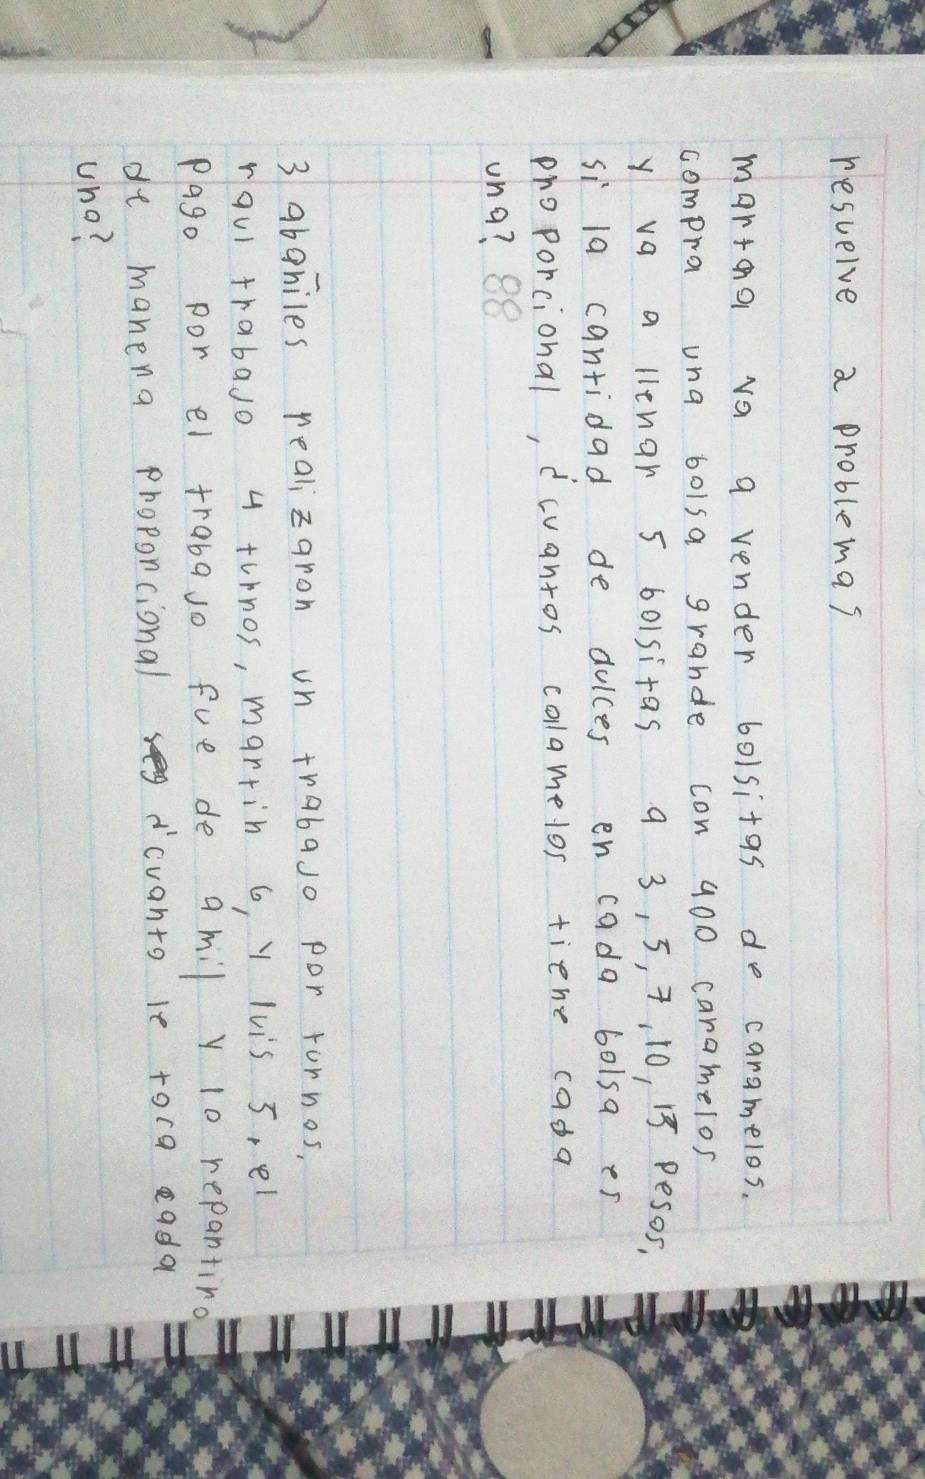 resuelve 2 problemas
martha va a vender bolsitas de caramelos.
compra una bolsa grande con 400 caramelos
y va a llenar 5 bolsitas a 3, 5, 7, 10, 15 pesos,
si la cantidad de dulces en cada bolsa es
proporcional, ¿cuantos calamelos tiene cada
una? 88
3 abañiles realizaron un trabajo por turnos,
raul trabajo 4 turnos, martin 6, y luis 5, el
pago por el trabajo fue de amil y lo repantino
de manera proporcional ¿cuanto le toca cada
uno?